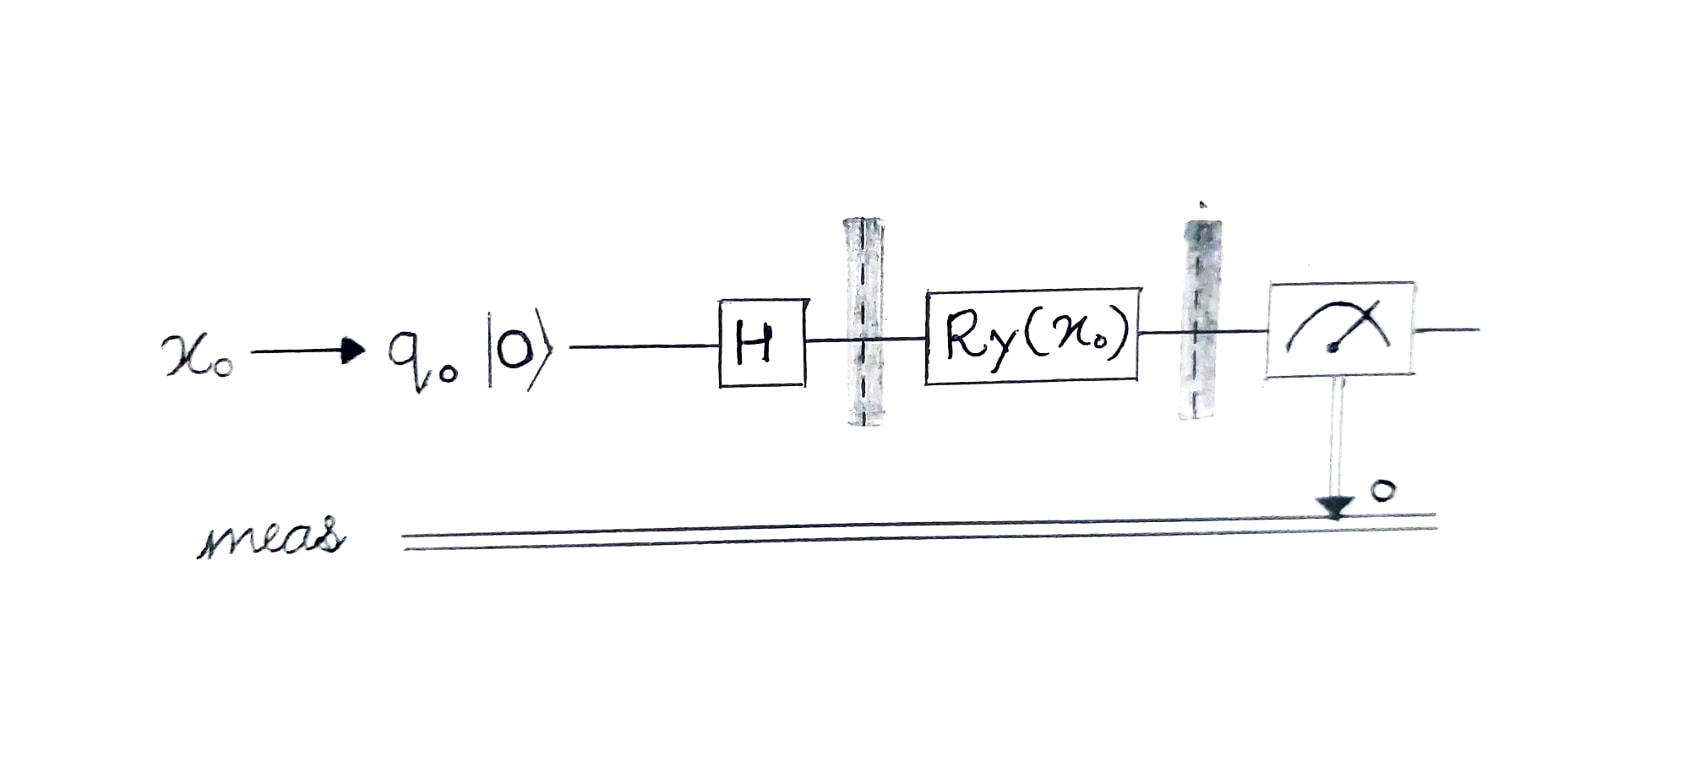 x₀ → q₀ |0⟩ H Ry(x₀)
0
meas